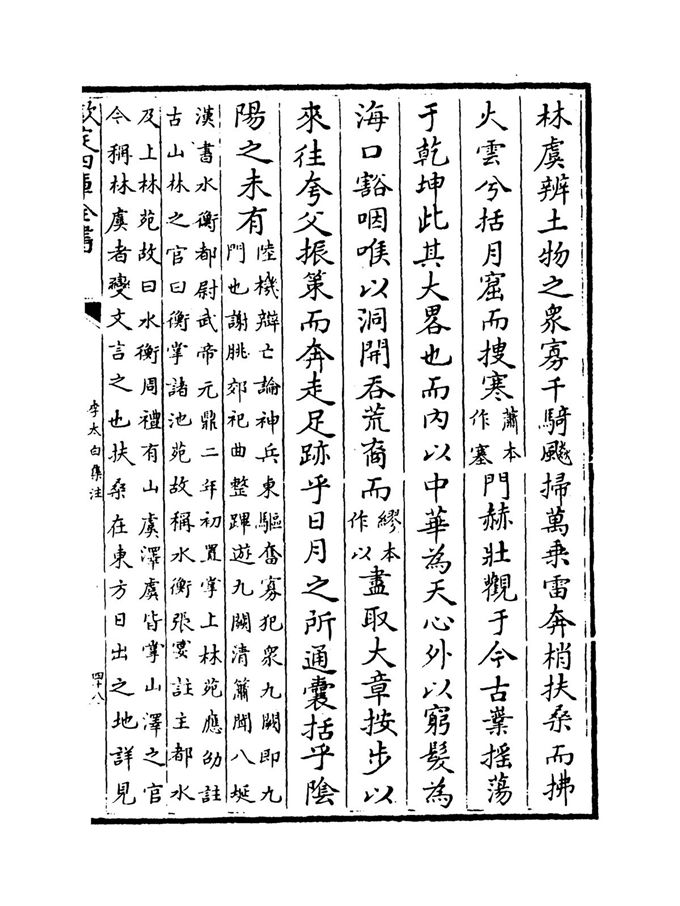 林虞辨土物之衆寡千騎飈掃萬乗雷奔梢扶桑而拂
火雲兮括月窟而捜寒蕭本作塞門赫壯觀于今古業揺蕩
于乾坤此其大畧也而内以中華為天心外以窮髮為
海口豁咽喉以洞開吞荒裔而繆本作以盡取大章按步以
來往夸父振策而奔走足跡乎日月之所通囊括乎陰
陽之未有陸機辯亡論神兵東驅奮寡犯衆九闕即九
門也謝朓郊祀曲整蹕遊九闕清簫聞八埏
漢書水衡都尉武帝元鼎二年初置掌上林苑應劭註
古山林之官曰衡掌諸池苑故稱水衡張晏註主都水
及上林苑故曰水衡周禮有山虞澤虞皆掌山澤之官
今稱林虞者變文言之也扶桑在東方日出之地詳見
欽定四庫全書
李太白集注
四十八